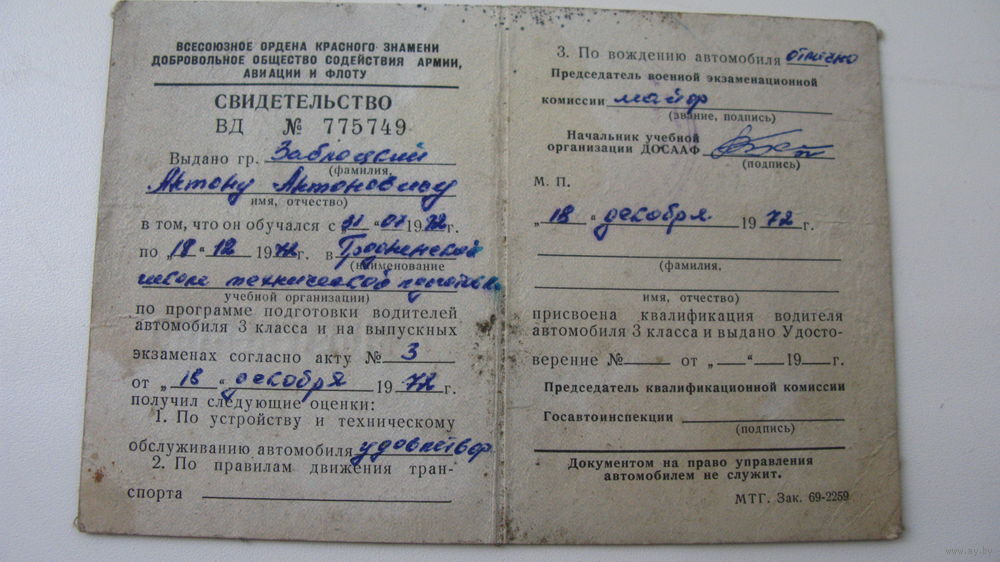 ВСЕСОЮЗНОЕ ОРДЕНА КРАСНОГО ЗНАМЕНИ
ДОБРОВОЛЬНОЕ ОБЩЕСТВО СОДЕЙСТВИЯ АРМИИ,
АВИАЦИИ И ФЛОТУ
СВИДЕТЕЛЬСТВО
ВД № 775749
Выдано гр. Заблоцкий
(фамилия,
Антону Антоновичу
имя, отчество)
в том, что он обучался с „ “ 07 1972 г.
по „18“ 12 1972 г. в Гродненской
(наименование
школе технической подготовки
учебной организации)
по программе подготовки водителей
автомобиля 3 класса и на выпускных
экзаменах согласно акту № 3
от „18“ декабря 1972 г.
получил следующие оценки:
1. По устройству и техническому
обслуживанию автомобиля удовлетвор
2. По правилам движения тран-
спорта
3. По вождению автомобиля отлично
Председатель военной экзаменационной
комиссии майор
(звание, подпись)
Начальник учебной
организации ДОСААФ
(подпись)
М. П.
„18“ декабря 1972 г.
(фамилия,
имя, отчество)
присвоена квалификация водителя
автомобиля 3 класса и выдано Удосто-
верение № от „ “ 19 г.
Председатель квалификационной комиссии
Госавтоинспекции
(подпись)
Документом на право управления
автомобилем не служит.
МТГ. Зак. 69-2259
www.ay.by